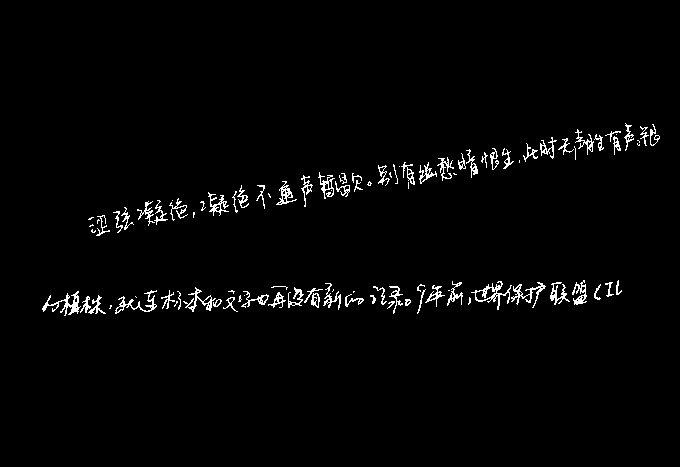 涩弦凝绝,凝绝不通声暂歇。别有幽愁暗恨生,此时无声胜有声。银
的植株,就连标本和文字也再没有新的记录。9年前,世界保护联盟(IU